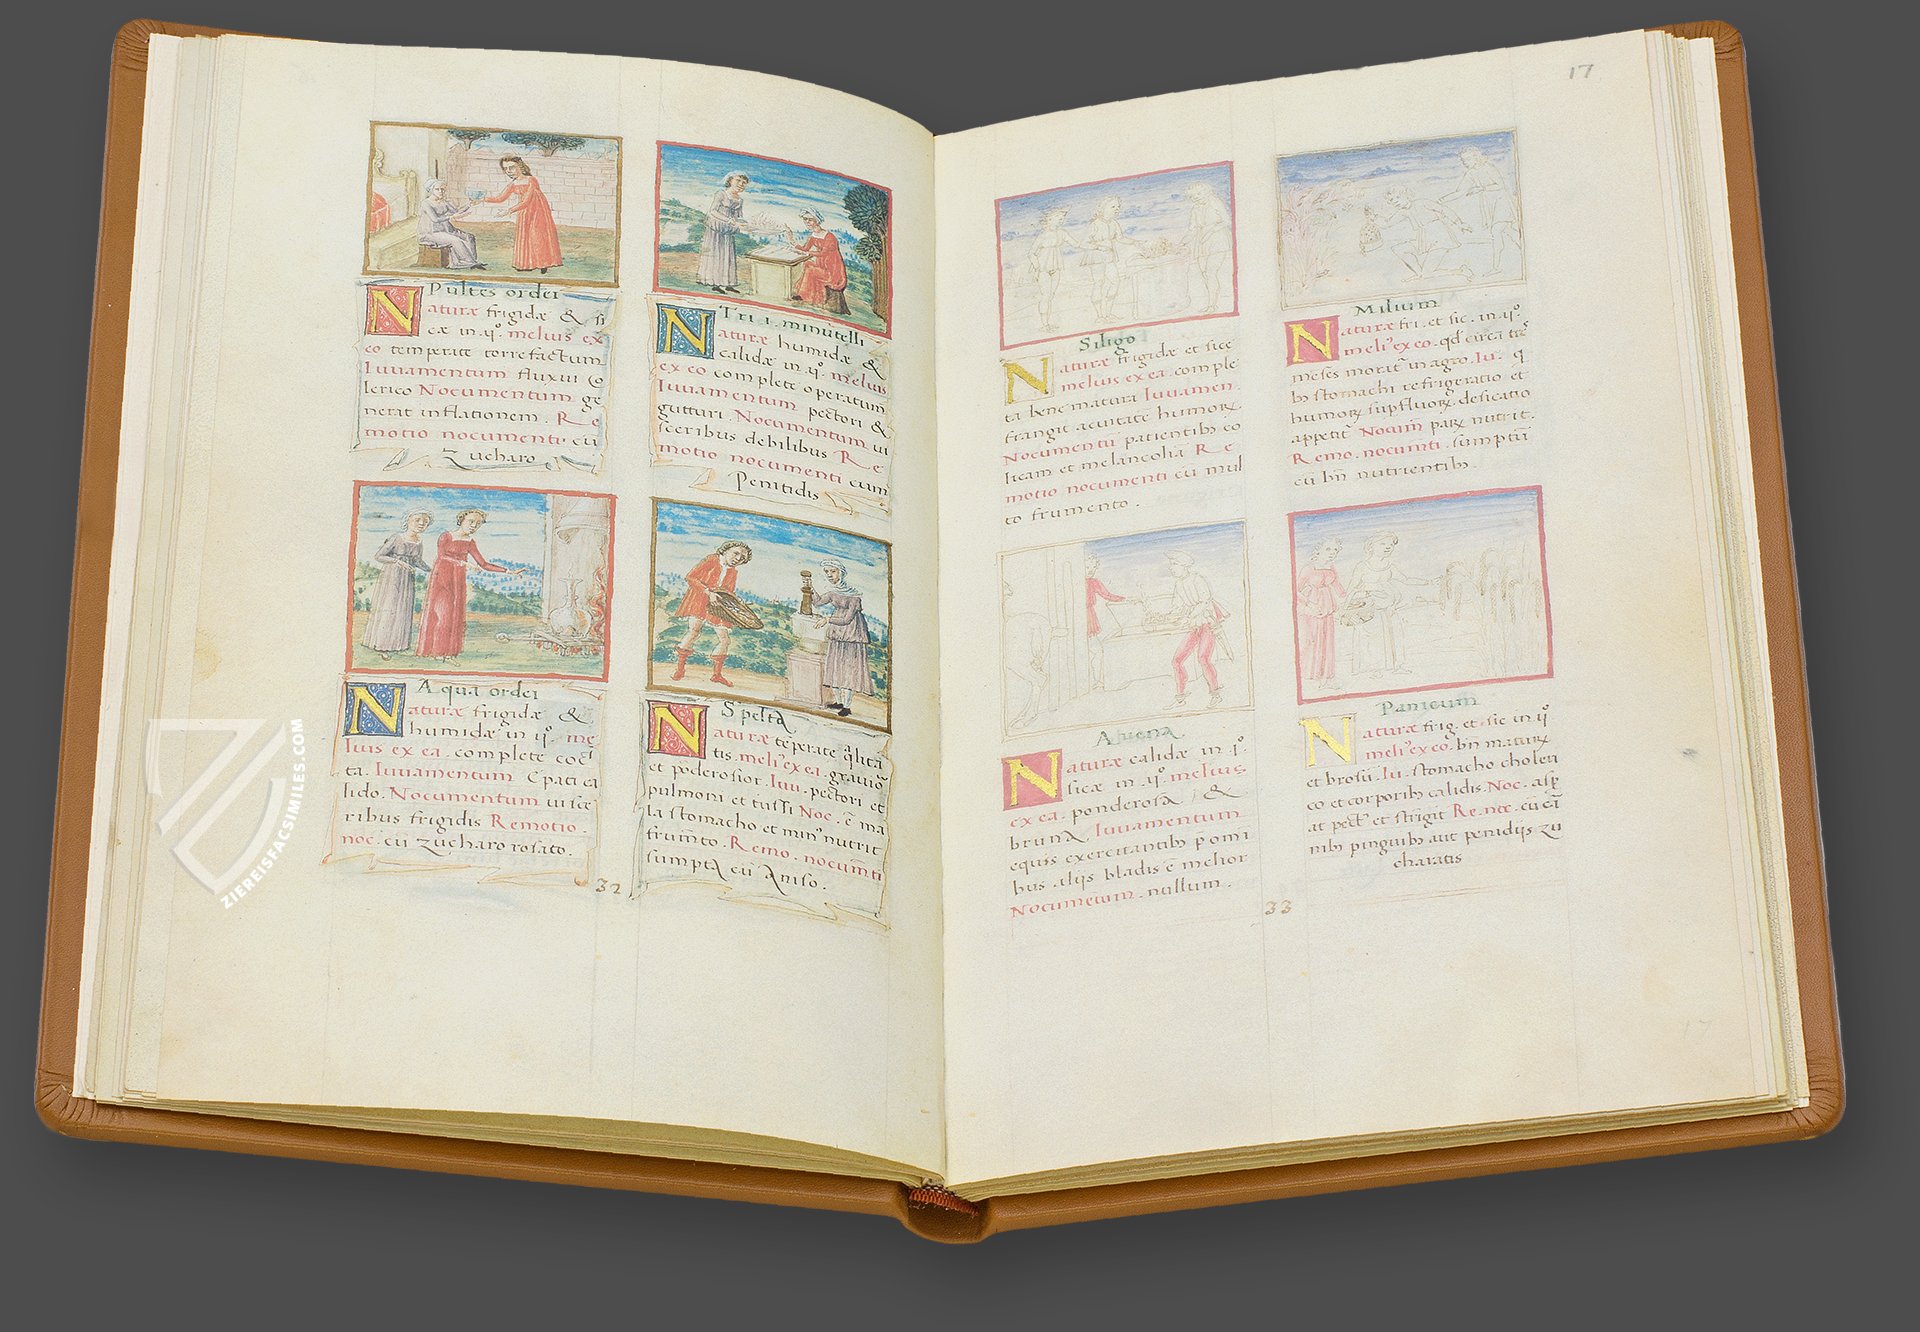 Pultes ordei
Naturæ frigidæ & si
cæ in .ijº. melius ex
eo temperate torrefactum
Iuuamentum fluxui co
lerico Nocumentum ge
nerat inflationem . Re
motio nocumenti . cū
Zucharo
Tri i . minutelli
Naturæ humidæ &
calidæ in .ijº. melius
ex eo complete operatum
Iuuamentum pectori &
gutturi . Nocumentum ui
sceribus debilibus Re
motio nocumenti cum
Penitidis
Aqua ordei
Naturæ frigidæ &
humidæ in .ijº. me
lius ex ea . complete coc
ta . Iuuamentum Epati ca
lido . Nocumentum uisce
ribus frigidis Remotio .
noc . cū zucharo rosato .
Spelta
Naturæ tēperate q̄lita
tis . meliꝰ ex ea . grauiō
et pōderosior . Iuu . pectori et
pulmoni et tussi Noc . ē ma
la stomacho et minꝰ nutrit
frum̄to . Remo . nocum̄ti
sumpta cū Aniso .
32
17
Siligo
Naturæ frigidæ et sice
melius ex ea . comple
ta bene matura Iuuamen .
frangit acuitatē humorꝝ
Nocumentū patientibꝫ co
licam et melancolia Re
motio nocumenti cū mul
to frumento .
Milium
Naturæ fri . et sic . in .ijº.
meliꝰ ex eo . qđ circa
meses in agro . Iu .
stomachi refrigeratio et
humorꝝ supfluorꝝ desicatio
appetit Nocum̄ parꝝ nutrit .
Remo . nocum̄ti . sumptū
cū bn̄ nutrientibꝫ .
Auena
Naturæ calidæ in .jº.
sicæ in .ijº. melius
ex ea . ponderosa / &
bruna . Iuuamentum
equis exercitantibꝫ p̄ omi
bus . alijs bladis ē melior
Nocumētum . nullum .
Panicum
Naturæ frig . et . sic in .ij
meliꝰ ex eo . bn̄ maturꝝ
et . Iu . stomacho coleri
co et corporibꝫ calidis . Noc .
at pect̄ et strīgit Re . noc̄ . cū cā
nibꝫ pinguibꝫ aut penidijs zu
charatis
33
17
ZIEREISFACSIMILES.COM